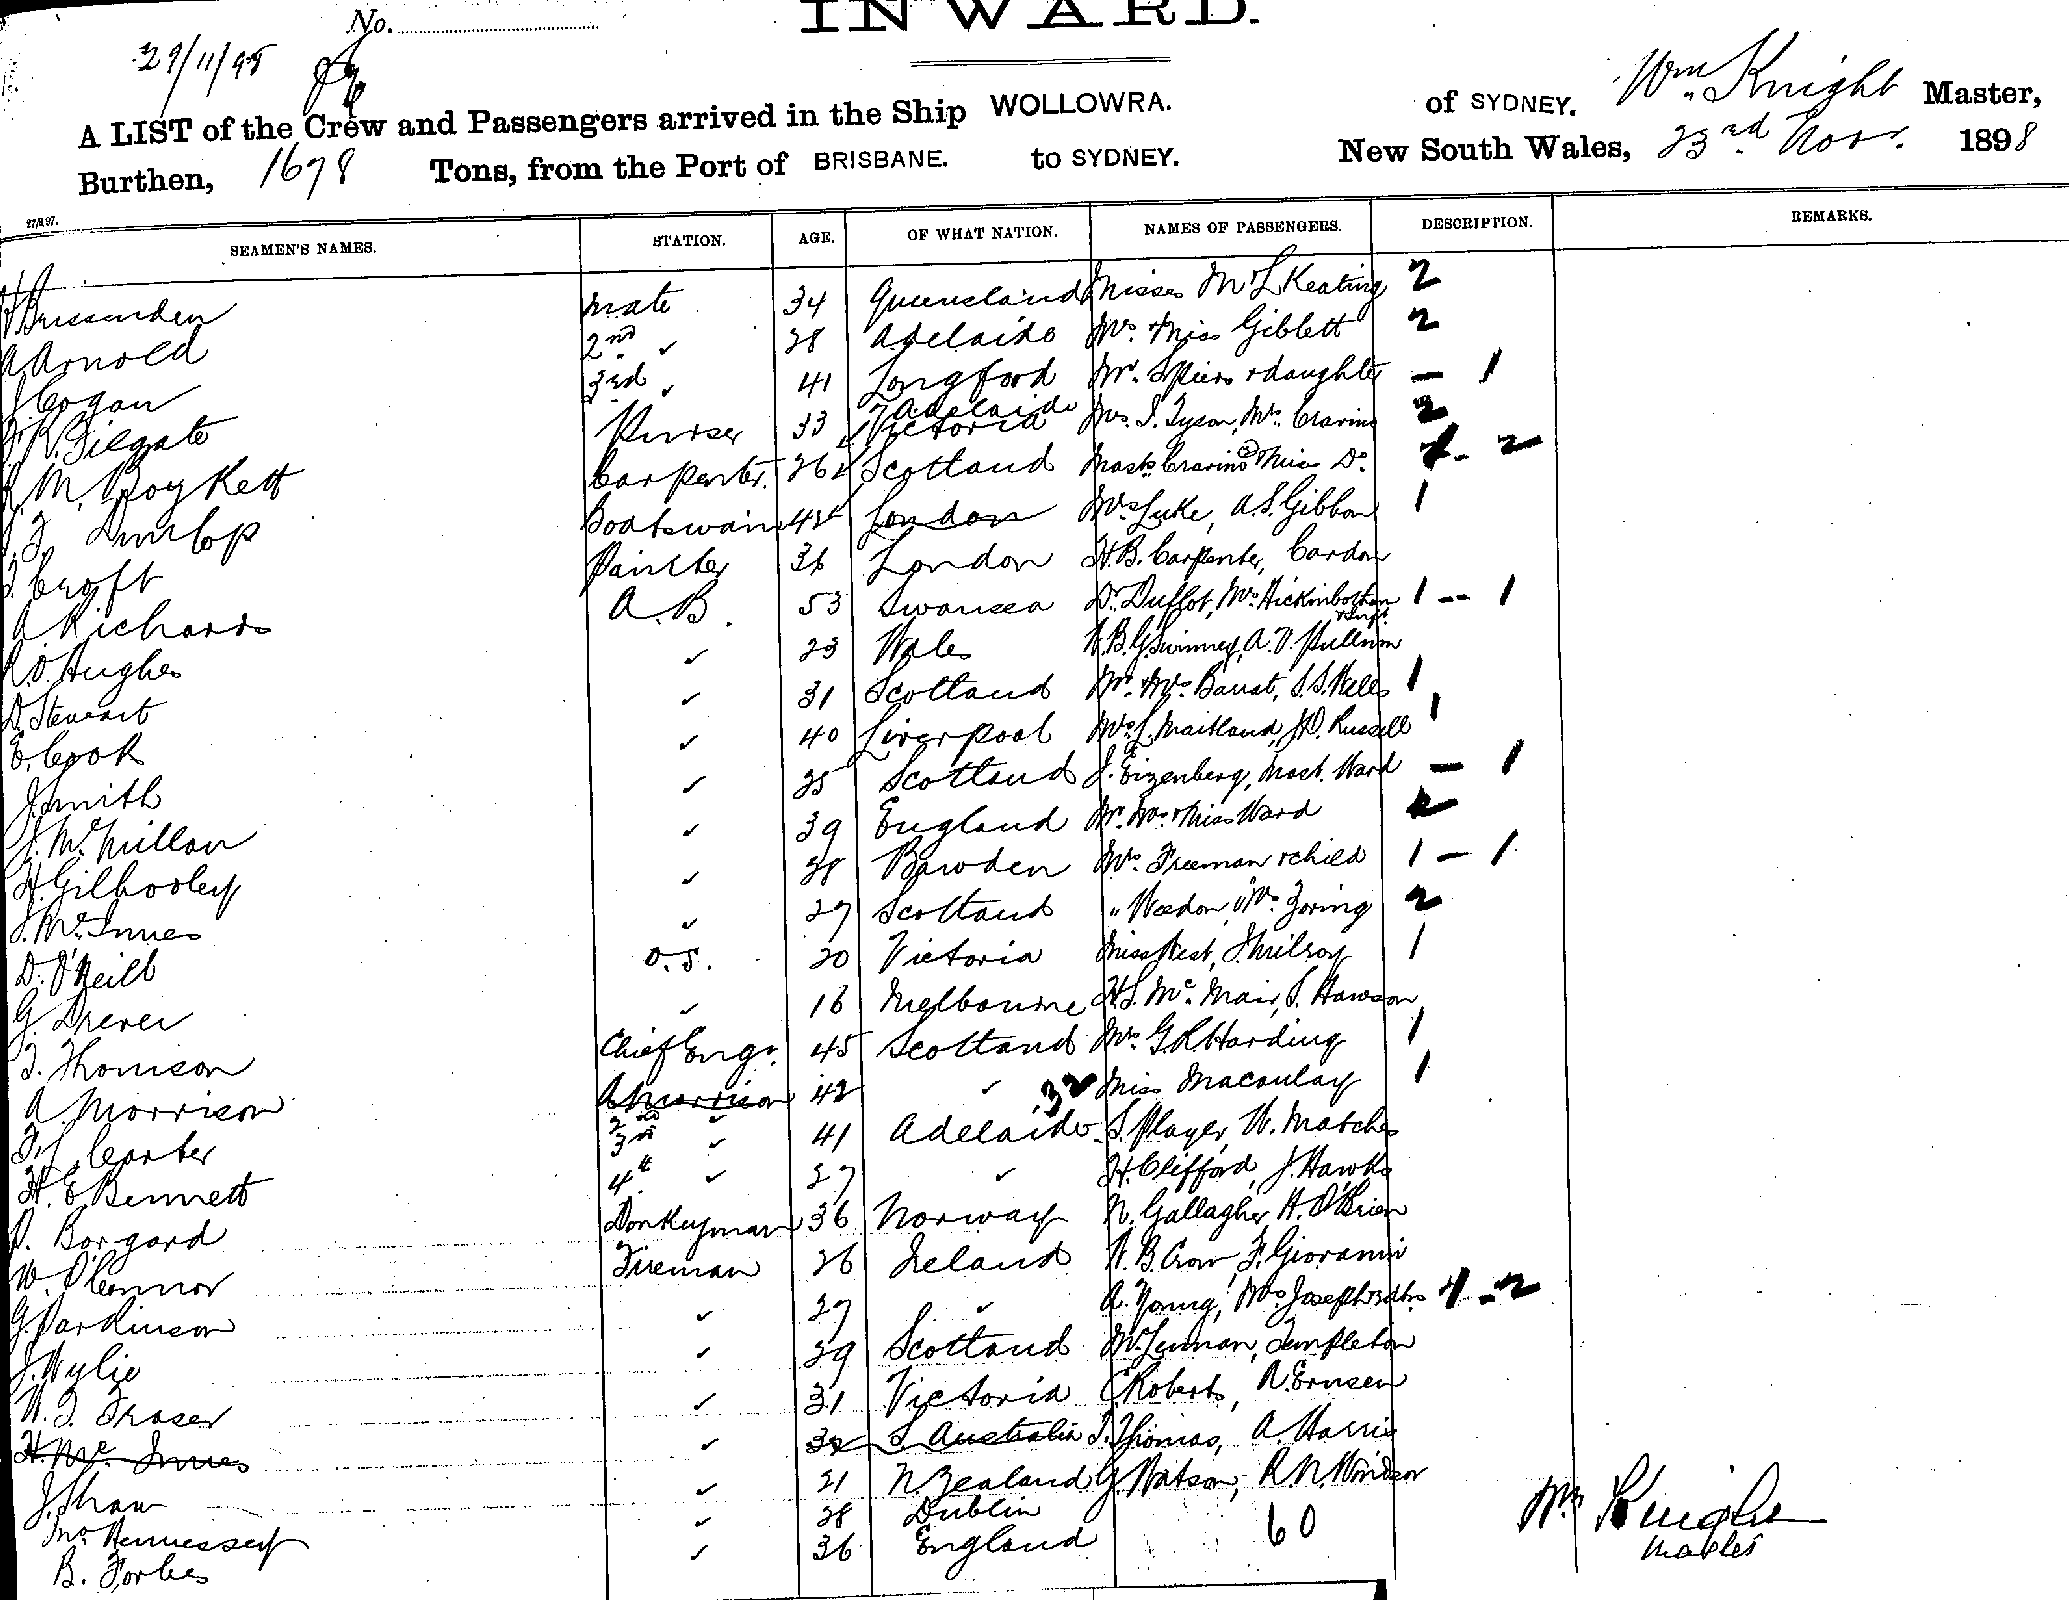 No.
INWARD.
29/11/98
A LIST of the Crew and Passengers arrived in the Ship WOLLOWRA. of SYDNEY. Wm Knight Master,
Burthen, 1678 Tons, from the Port of BRISBANE. to SYDNEY. New South Wales, 23rd Novr. 1898
SEAMEN'S NAMES. STATION. AGE. OF WHAT NATION. NAMES OF PASSENGERS. DESCRIPTION. REMARKS.
Brissenden mate 34 Queensland Misses M L Keating 2
A Arnold 2nd ✓ 28 Adelaide Mrs. & Miss Giblett 2
J Cogan 3rd ✓ 41 Longford Mr. Spiers & daughter – 1
Filgate Purser 33 Adelaide Victoria Mrs. I. Tyson, Mrs. Cravino 2
M. Boykett Carpenter. 26 Scotland Mastr. Cravino & Miss Do. 2
Dunlop Boatswain 42 London Mrs Luke, A.S. Gibbon 1
Croft Painter 36 London H.B. Carpenter, Cardon
A Richards A.B. 53 Swansea Dr. Duffot, Mrs. Hickinbotham & Inft. 1 -- 1
R.O. Hughes ✓ 23 Wales W.B.G. Swinney, A.D. Pullman
D. Stewart ✓ 31 Scotland Mr. & Mrs. Barrat, S.S. Wells 1
E. Cook ✓ 40 Liverpool Mrs. L. Maitland, J.D. Russell 1
J Smith ✓ 25 Scotland J. Eizenberg, Mast. Ward – 1
J. McMillan ✓ 39 England Mr. Mrs. & Miss Ward 2
H. Gilhooley ✓ 28 Bowden Mrs. Freeman & child 1 – 1
J. McInnes ✓ 27 Scotland " Weedon, Mrs. Zoring 2
D. O'Neill O.S. 20 Victoria Miss West, J. Milroy 1
G. Drever ✓ 16 Melbourne H.S. McMair, S. Hawson
T. Thomson Chief Engr. 45 Scotland Mrs. G.R. Harding 1
A. Morrison A Morrison 2nd ✓ 42 ✓ 32 Miss Macaulay 1
Carter 3rd ✓ 41 Adelaide S. Player, W. Matches
H. E. Bennett 4th ✓ 27 ✓ H. Clifford, J. Hawks
P. Borgard Donkeyman 36 Norway N. Gallagher, H. O'Brien
W. O'Connor Fireman 26 Ireland W.B. Crow, F. Giovanni
G. Pardinson ✓ 27 ✓ A. Young, Mrs Joseph 4 - 2
J. Wylie ✓ 29 Scotland McLennan, Templeton
W. F. Fraser ✓ 31 Victoria C Roberts, R. Ernsen
H. McInnes ✓ 32 S. Australia T. Thomas, A. Harris
J. Shaw ✓ 21 N Zealand G. Watson, R.N. Windsor
Mr Hennessey ✓ 28 Dublin
B. Forbes ✓ 36 England 60
Wm Knight
Master